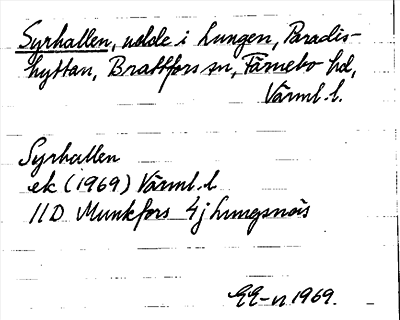 Syrhallen, udde i Lungen, Paradis-
hyttan, Brattfors sn, Färnebo hd,
Värml. l.
Syrhallen
ek (1969) Värml. l
11D Munkfors 4j Lungsnäs
1969.